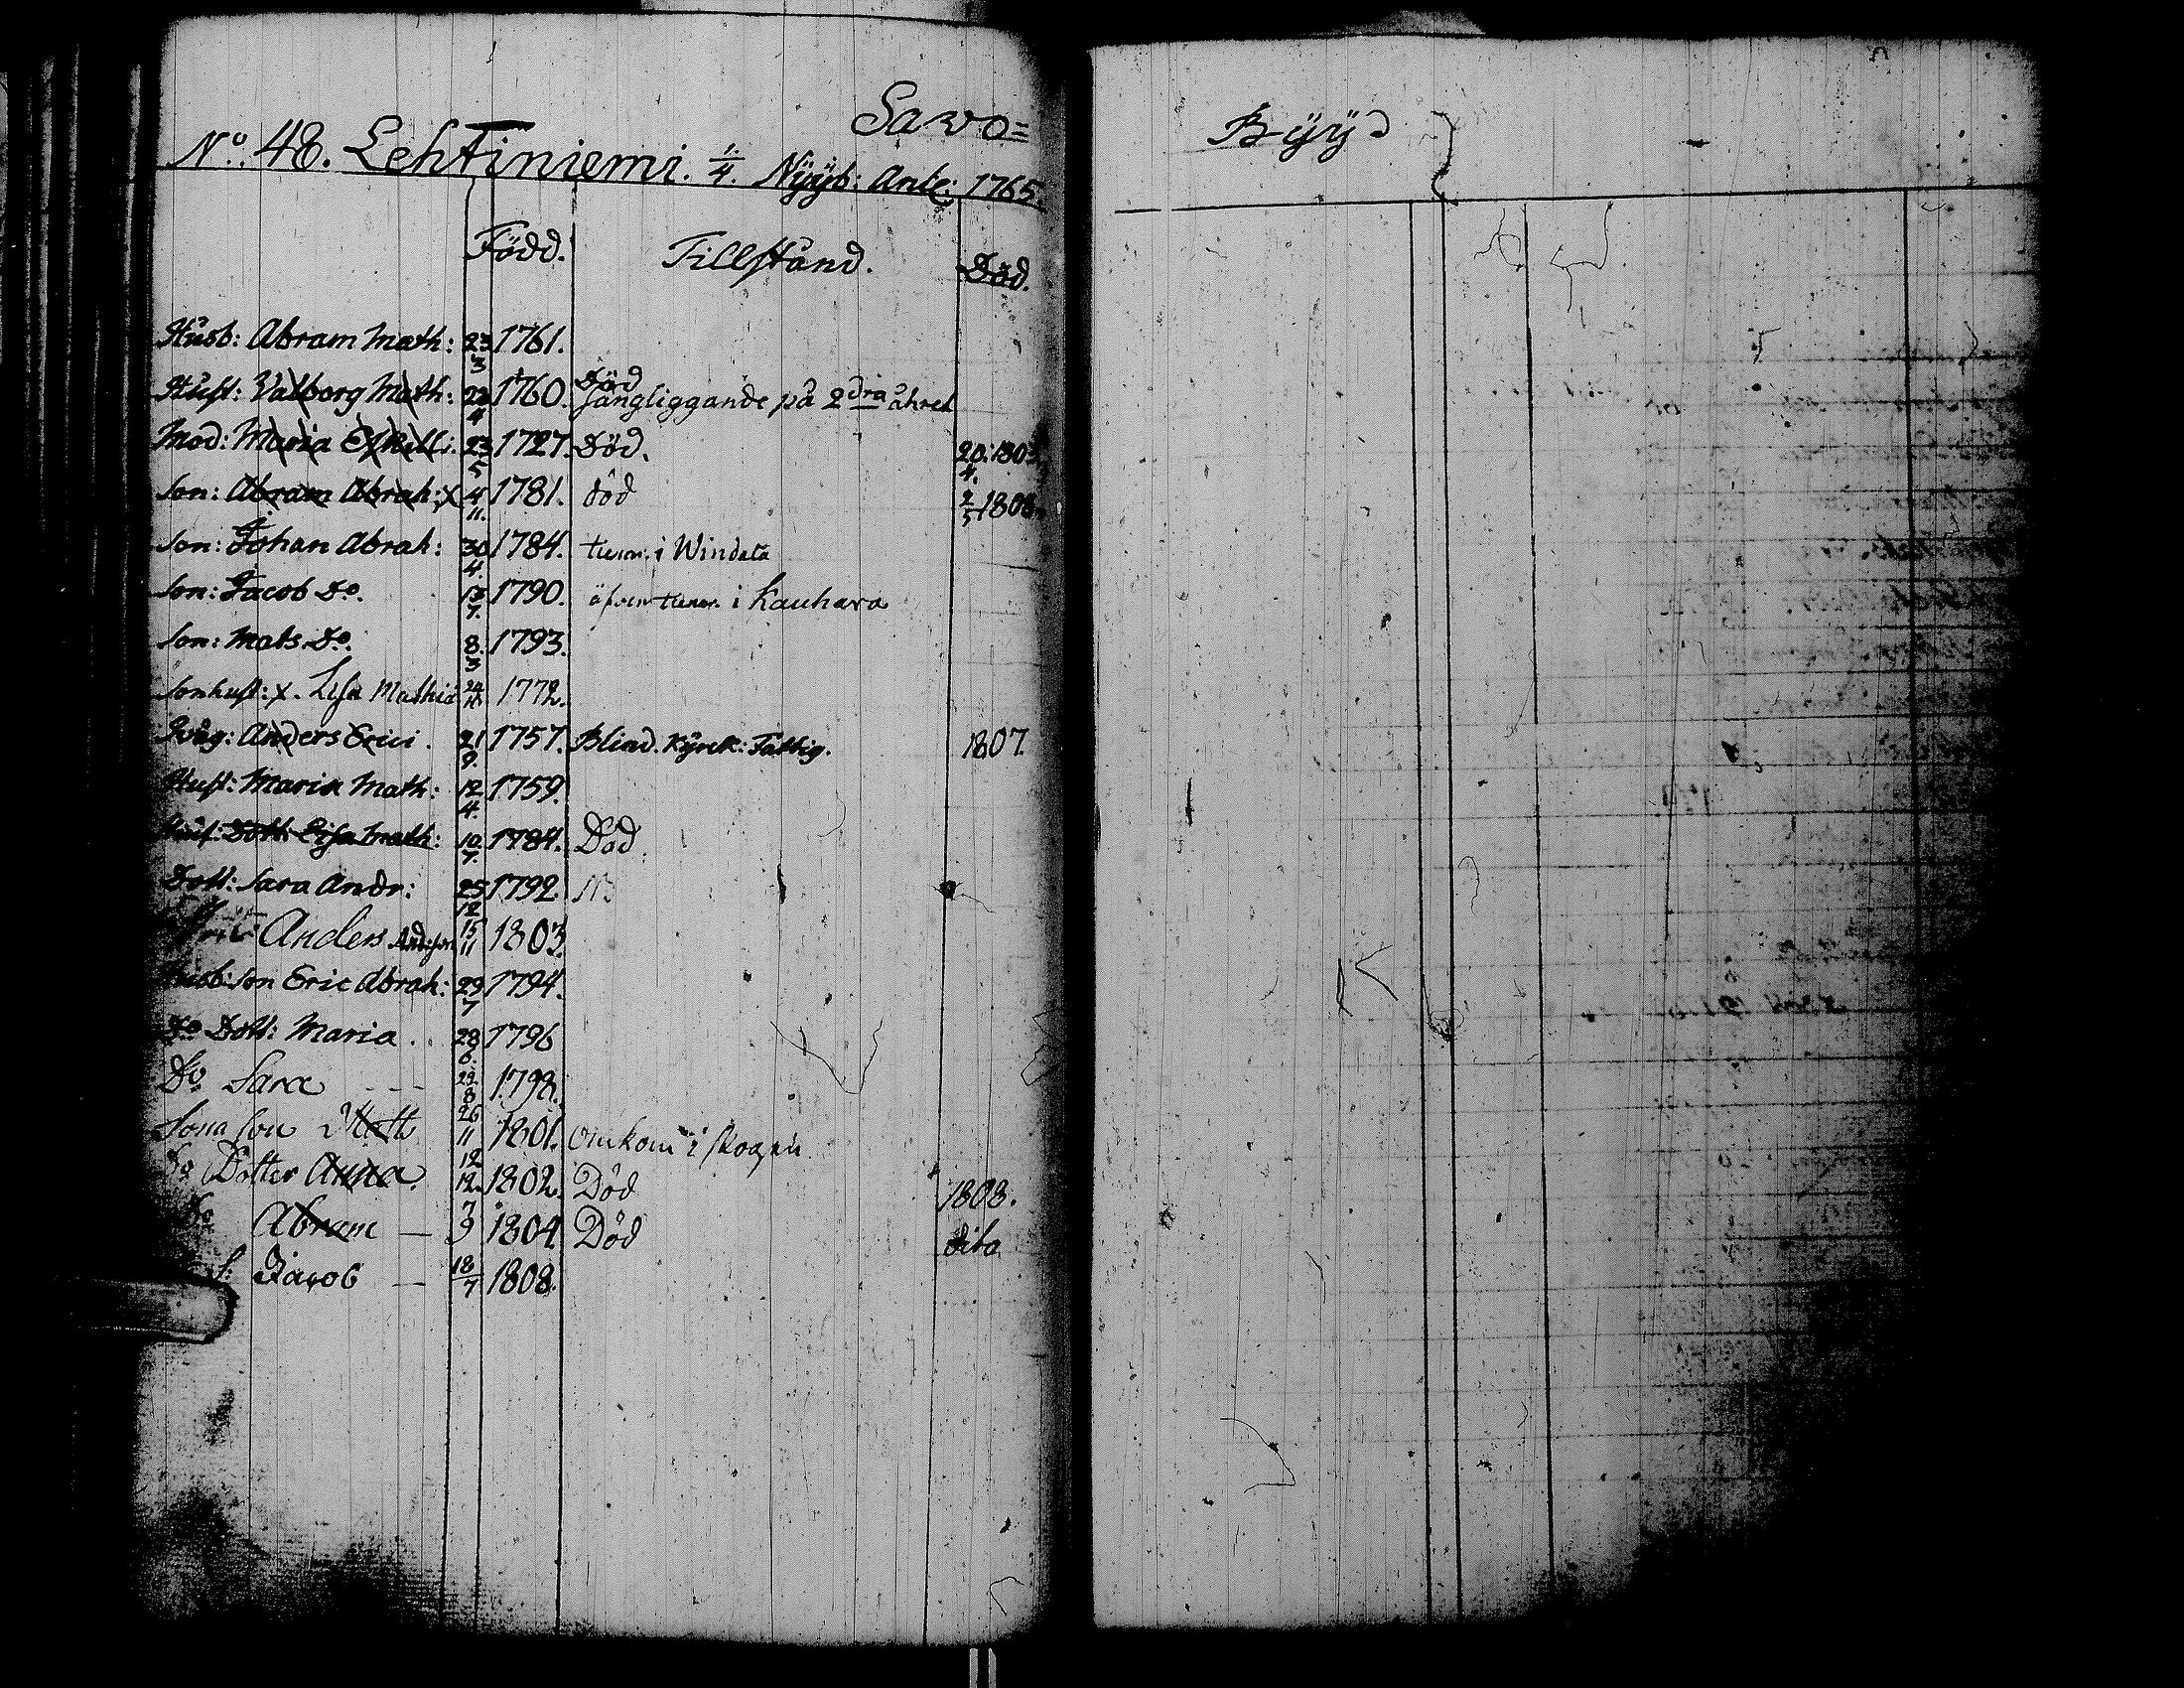 Savo=
Bÿÿ
No. 48. Lehtiniemi. 1/4. Nÿÿb: Anl: 1765.
Född. Tillstånd. Död.
Husb: Abram Math: 23/3 1761.
Hust: Valborg Math: 22/4 1760. Död Sängliggande på 2dra åhret
Mod: Maria 23/5 1727. Död. 20/4. 1803.
Son: Abram Abrah: x 4/11. 1781. död 2/5 1808.
Son: Johan Abrah: 30/4. 1784. i Windala
Son: Jacob Do. 13/7. 1790. i Kauhava
Son: Mats Do. 8/3 1793.
Sonhust: x. Lisa Mathid 24/ 1772.
Svåg: Anders Erici. 21/9. 1757. Blind. Kÿrck: Fattig. 1807.
Hust: Maria Math: 12/4. 1759.
Dott: Lisa Math: 10/7. 1784. Död
Dott: Sara Andr: 25/12 1792.
Anders Andsson 15/11 1803.
Husb: Son Eric Abrah: 29/7 1794.
Do Dott: Maria. 28/6. 1796
Do Sara 22/8 1798.
Sons Son Math 26/11 1801. Omkom i skogen
Do Dotter Anna. 12/12. 1802. Död 1808.
Do Abram — 7/9 1804. Död dito
S: Jacob — 18/7 1808.